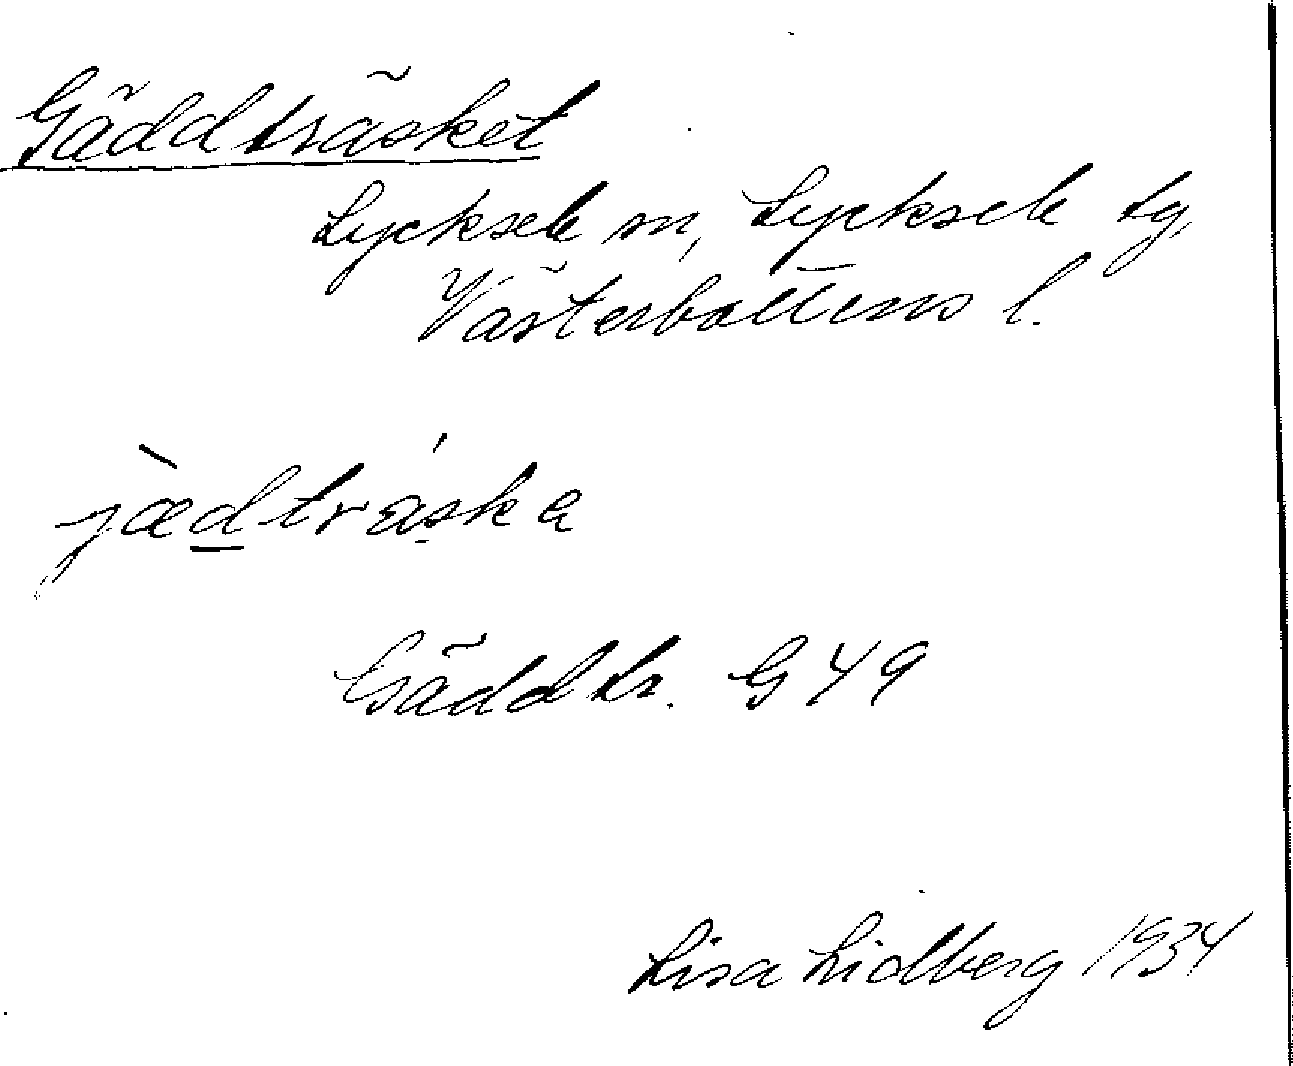 Gäddträsket
Lycksele sn, Lycksele tg,
Västerbottens l.
jædtraska
Gäddtr. G 49
Lisa Lidberg 1934